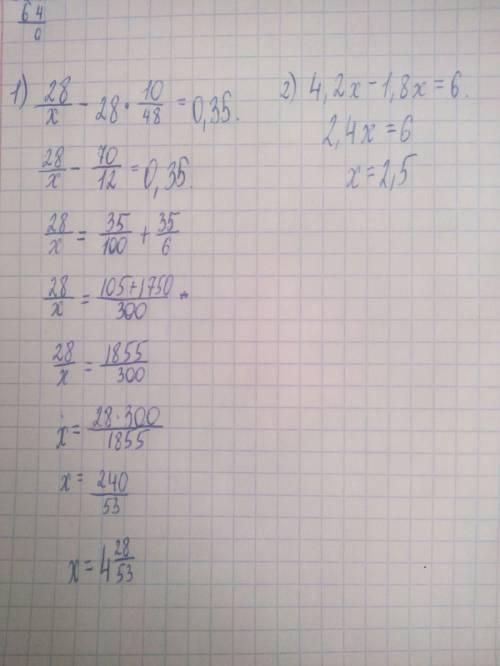 64
0
1) 28/x - 28 · 10/48 = 0,35.
28/x - 70/12 = 0,35.
28/x = 35/100 + 35/6
28/x = 105+1750/300
28/x = 1855/300
x = 28·300/1855
x = 240/53
x = 4 28/53
2) 4,2x - 1,8x = 6.
2,4x = 6
x = 2,5